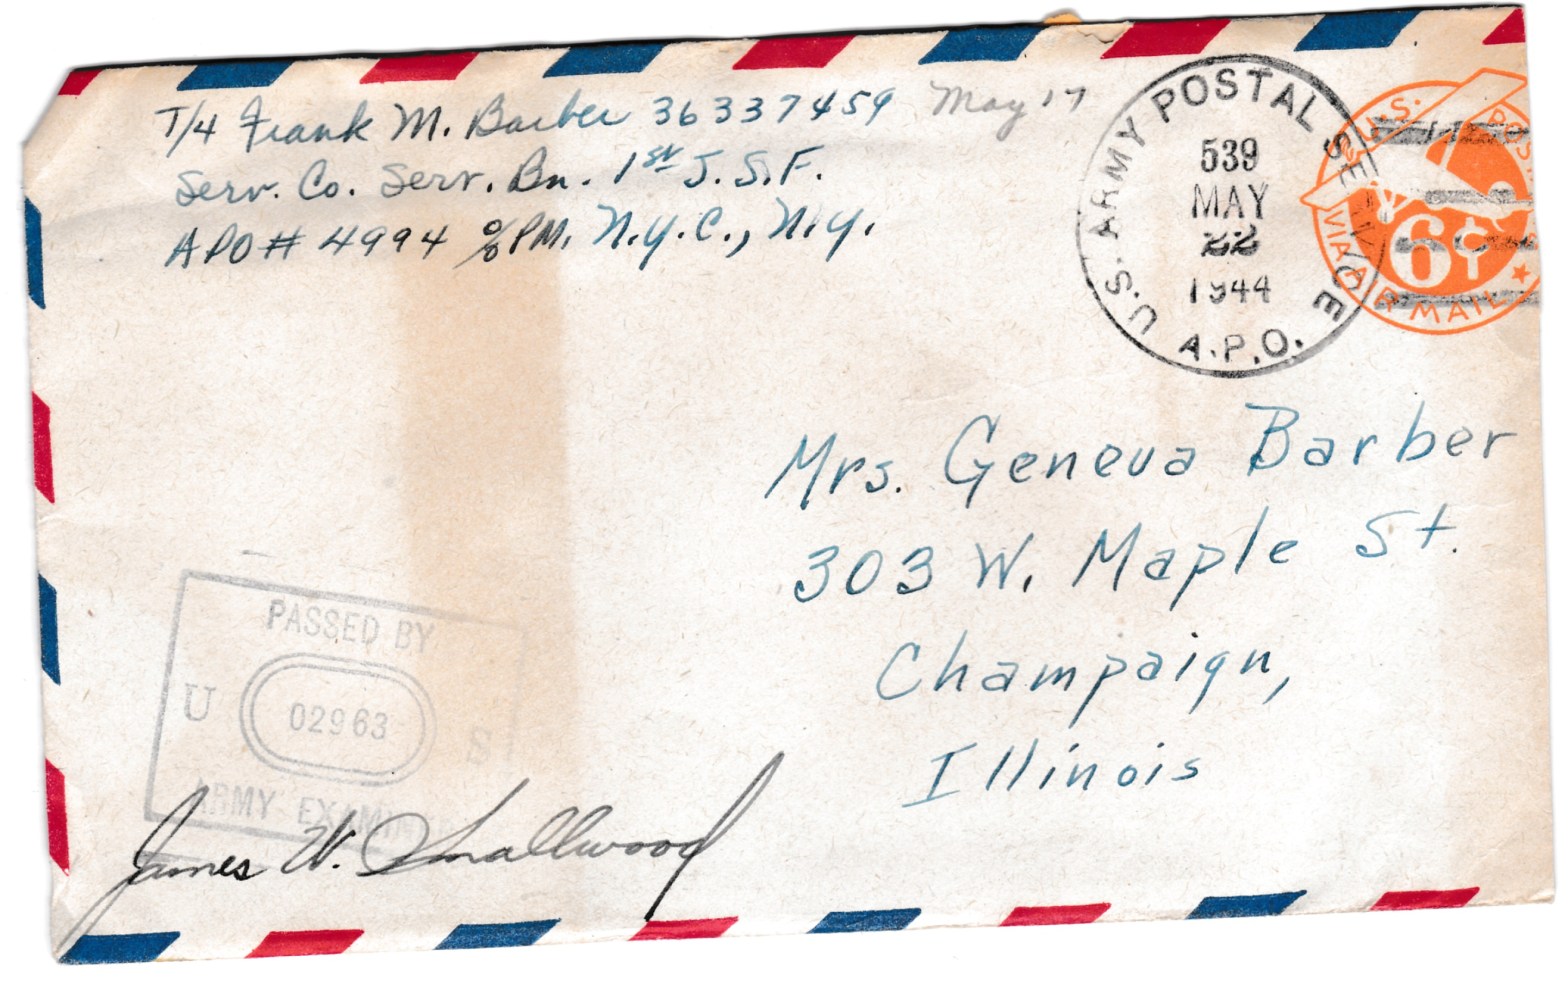 T/4 Frank M. Barber 36337459 May 17
Serv. Co. Serv. Bn. 1st S.S.F.
APO # 4994 c/o PM, N.Y.C., N.Y.
U.S. ARMY POSTAL SERVICE
539
MAY
22
1944
A.P.O.
U.S. POSTAGE
6¢
VIA AIR MAIL
Mrs. Geneva Barber
303 W. Maple St.
Champaign,
Illinois
PASSED BY
U 02963 S
ARMY EXAMINER
James W. Smallwood